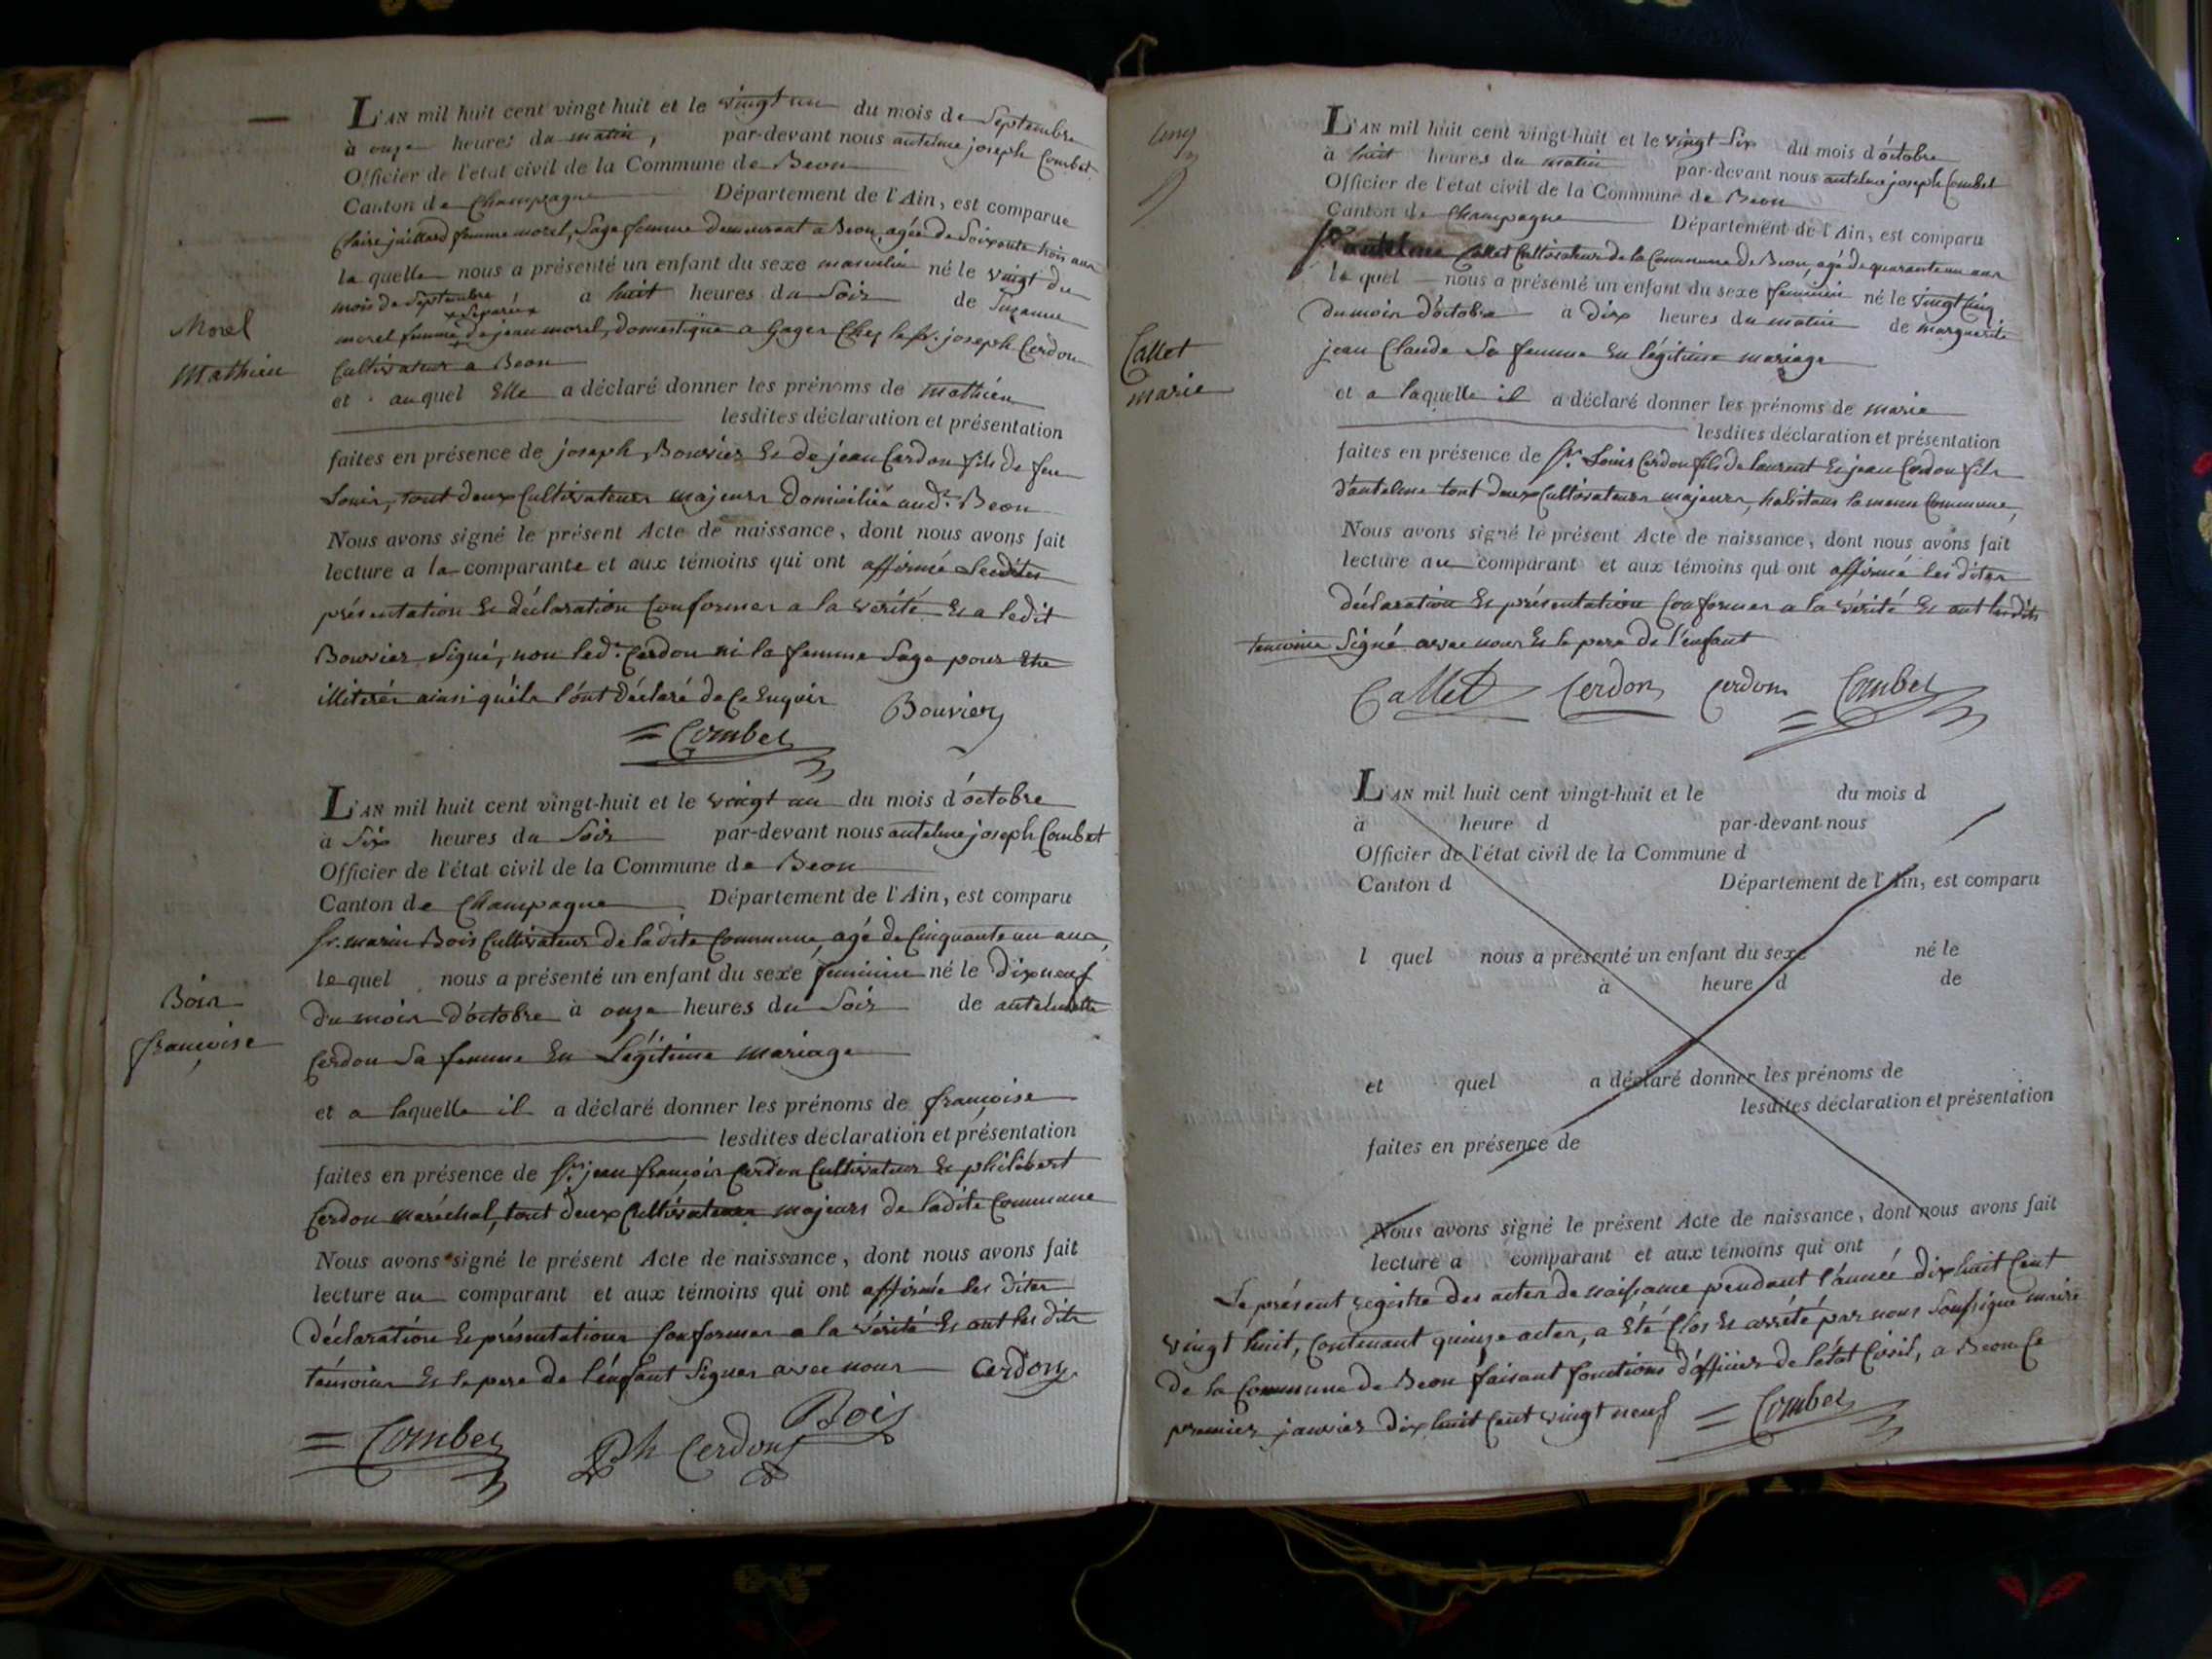 L'AN mil huit cent vingt huit et le vingt un du mois de Septembre
à onze heures du matin, par-devant nous antelme joseph Combet
Officier de l'état civil de la Commune de Beon
Canton de Champagne Département de l'Ain, est comparue
Claire juillard femme morel, Sage femme demeurant a Beon, agée de Soixante trois ans
la quelle nous a présenté un enfant du sexe masculin né le vingt du
mois de Septembre à huit heures du Soir de Suzanne
x Séparée x
morel femme x de jean morel, domestique a Gages Chez le Sr. joseph Cerdon
Cultivateur a Beon
Morel
Mathieu
et auquel Elle a déclaré donner les prénoms de mathieu
lesdites déclaration et présentation
faites en présence de joseph Bouvier Et de jean Cerdon fils de feu
Louis, tout deux Cultivateurs majeurs domiciliés aud. Beon
Nous avons signé le présent Acte de naissance, dont nous avons fait
lecture a la comparante et aux témoins qui ont affirmé Lesdites
présentation Et déclaration Conformes a la vérité Et a ledit
Bouvier Signé, non led. Cerdon ni la femme Sage pour Etre
illiterés ainsi qu'ils l'ont déclaré de Ce Enquis
Bouvier
= Combet
L'AN mil huit cent vingt-huit et le vingt un du mois d'octobre
à Six heures du Soir par-devant nous antelme joseph Combet
Officier de l'état civil de la Commune de Beon
Canton de Champagne Département de l'Ain, est comparu
Sr. marin Bois Cultivateur de ladite Commune, agé de Cinquante un ans,
lequel nous a présenté un enfant du sexe feminin né le dix neuf
du mois d'octobre à onze heures du Soir de antelmette
Cerdon Sa femme En Légitime mariage
Bois
françoise
et a laquelle il a déclaré donner les prénoms de françoise
lesdites déclaration et présentation
faites en présence de Srs. jean françois Cerdon Cultivateur Et philibert
Cerdon maréchal, tout deux Cultivateurs majeurs de ladite Commune
Nous avons signé le présent Acte de naissance, dont nous avons fait
lecture au comparant et aux témoins qui ont affirmé les dites
déclaration Et présentation Conformes a la vérité Et ont les dits
témoins Et le pere de l'énfant Signer avec nous Cerdon
= Combet Ph Cerdon Bois
L'AN mil huit cent vingt-huit et le vingt Six du mois d'óctobre
à huit heures du matin par-devant nous antelme joseph Combet
Officier de l'état civil de la Commune de Beon
Canton de Champagne Département de l'Ain, est comparu
Sr antelme Callet Cultivateur de la Commune de Beon, agé de quarante un ans
le quel nous a présenté un enfant du sexe feminin né le vingt Cinq
du mois d'óctobre à dix heures du matin de marguerite
jean Claude Sa femme En légitime mariage
Callet
marie
et a laquelle il a déclaré donner les prénoms de marie
lesdites déclaration et présentation
faites en présence de Srs. Louis Cerdon fils de laurent Et jean Cerdon fils
d'antelme tout deux Cultivateurs majeurs, habitans la meme Commune,
Nous avons signé le présent Acte de naissance, dont nous avons fait
lecture au comparant et aux témoins qui ont affirmé les dites
déclaration Et présentation Conformes a la vérité Et ont lesdits
temoins Signé avec nous Et le pere de l'enfant
Callet Cerdon Cerdon = Combet
L'AN mil huit cent vingt-huit et le du mois d
à heure d par-devant nous
Officier de l'état civil de la Commune d
Canton d Département de l'Ain, est comparu
l quel nous a présenté un enfant du sexe né le
à heure d de
et quel a déclaré donner les prénoms de
lesdites déclaration et présentation
faites en présence de
Nous avons signé le présent Acte de naissance, dont nous avons fait
lecture a comparant et aux témoins qui ont
Le présent registre des actes de naissance pendant l'année dix huit Cent
vingt huit, Contenant quinze actes, a Eté Clos Et arrêté par nous Soussigné maire
de la Commune de Beon faisant fonctions d'officier de l'état Civil, a Beon Ce
premier janvier dix huit Cent vingt neuf = Combet